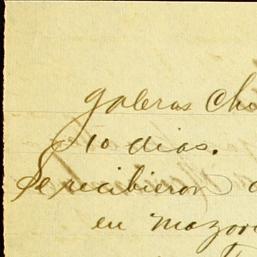 galeras Ch
10 dias.
Se recibieron
en mazor